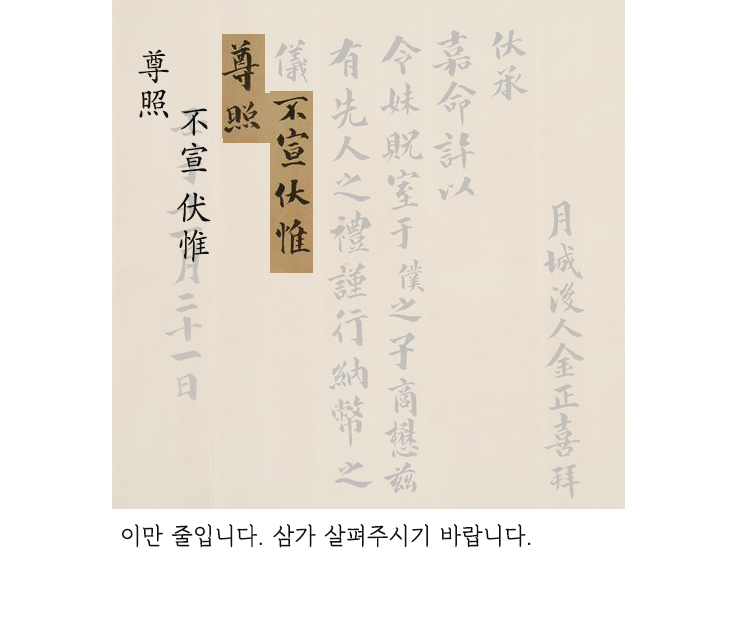 月城後人金正喜拜
伏承
嘉命許以
令妹貺室于僕之子商懋茲
有先人之禮謹行納幣之
儀不宣伏惟
尊照
月二十一日
不宣 伏惟
尊照
이만 줄입니다. 삼가 살펴주시기 바랍니다.